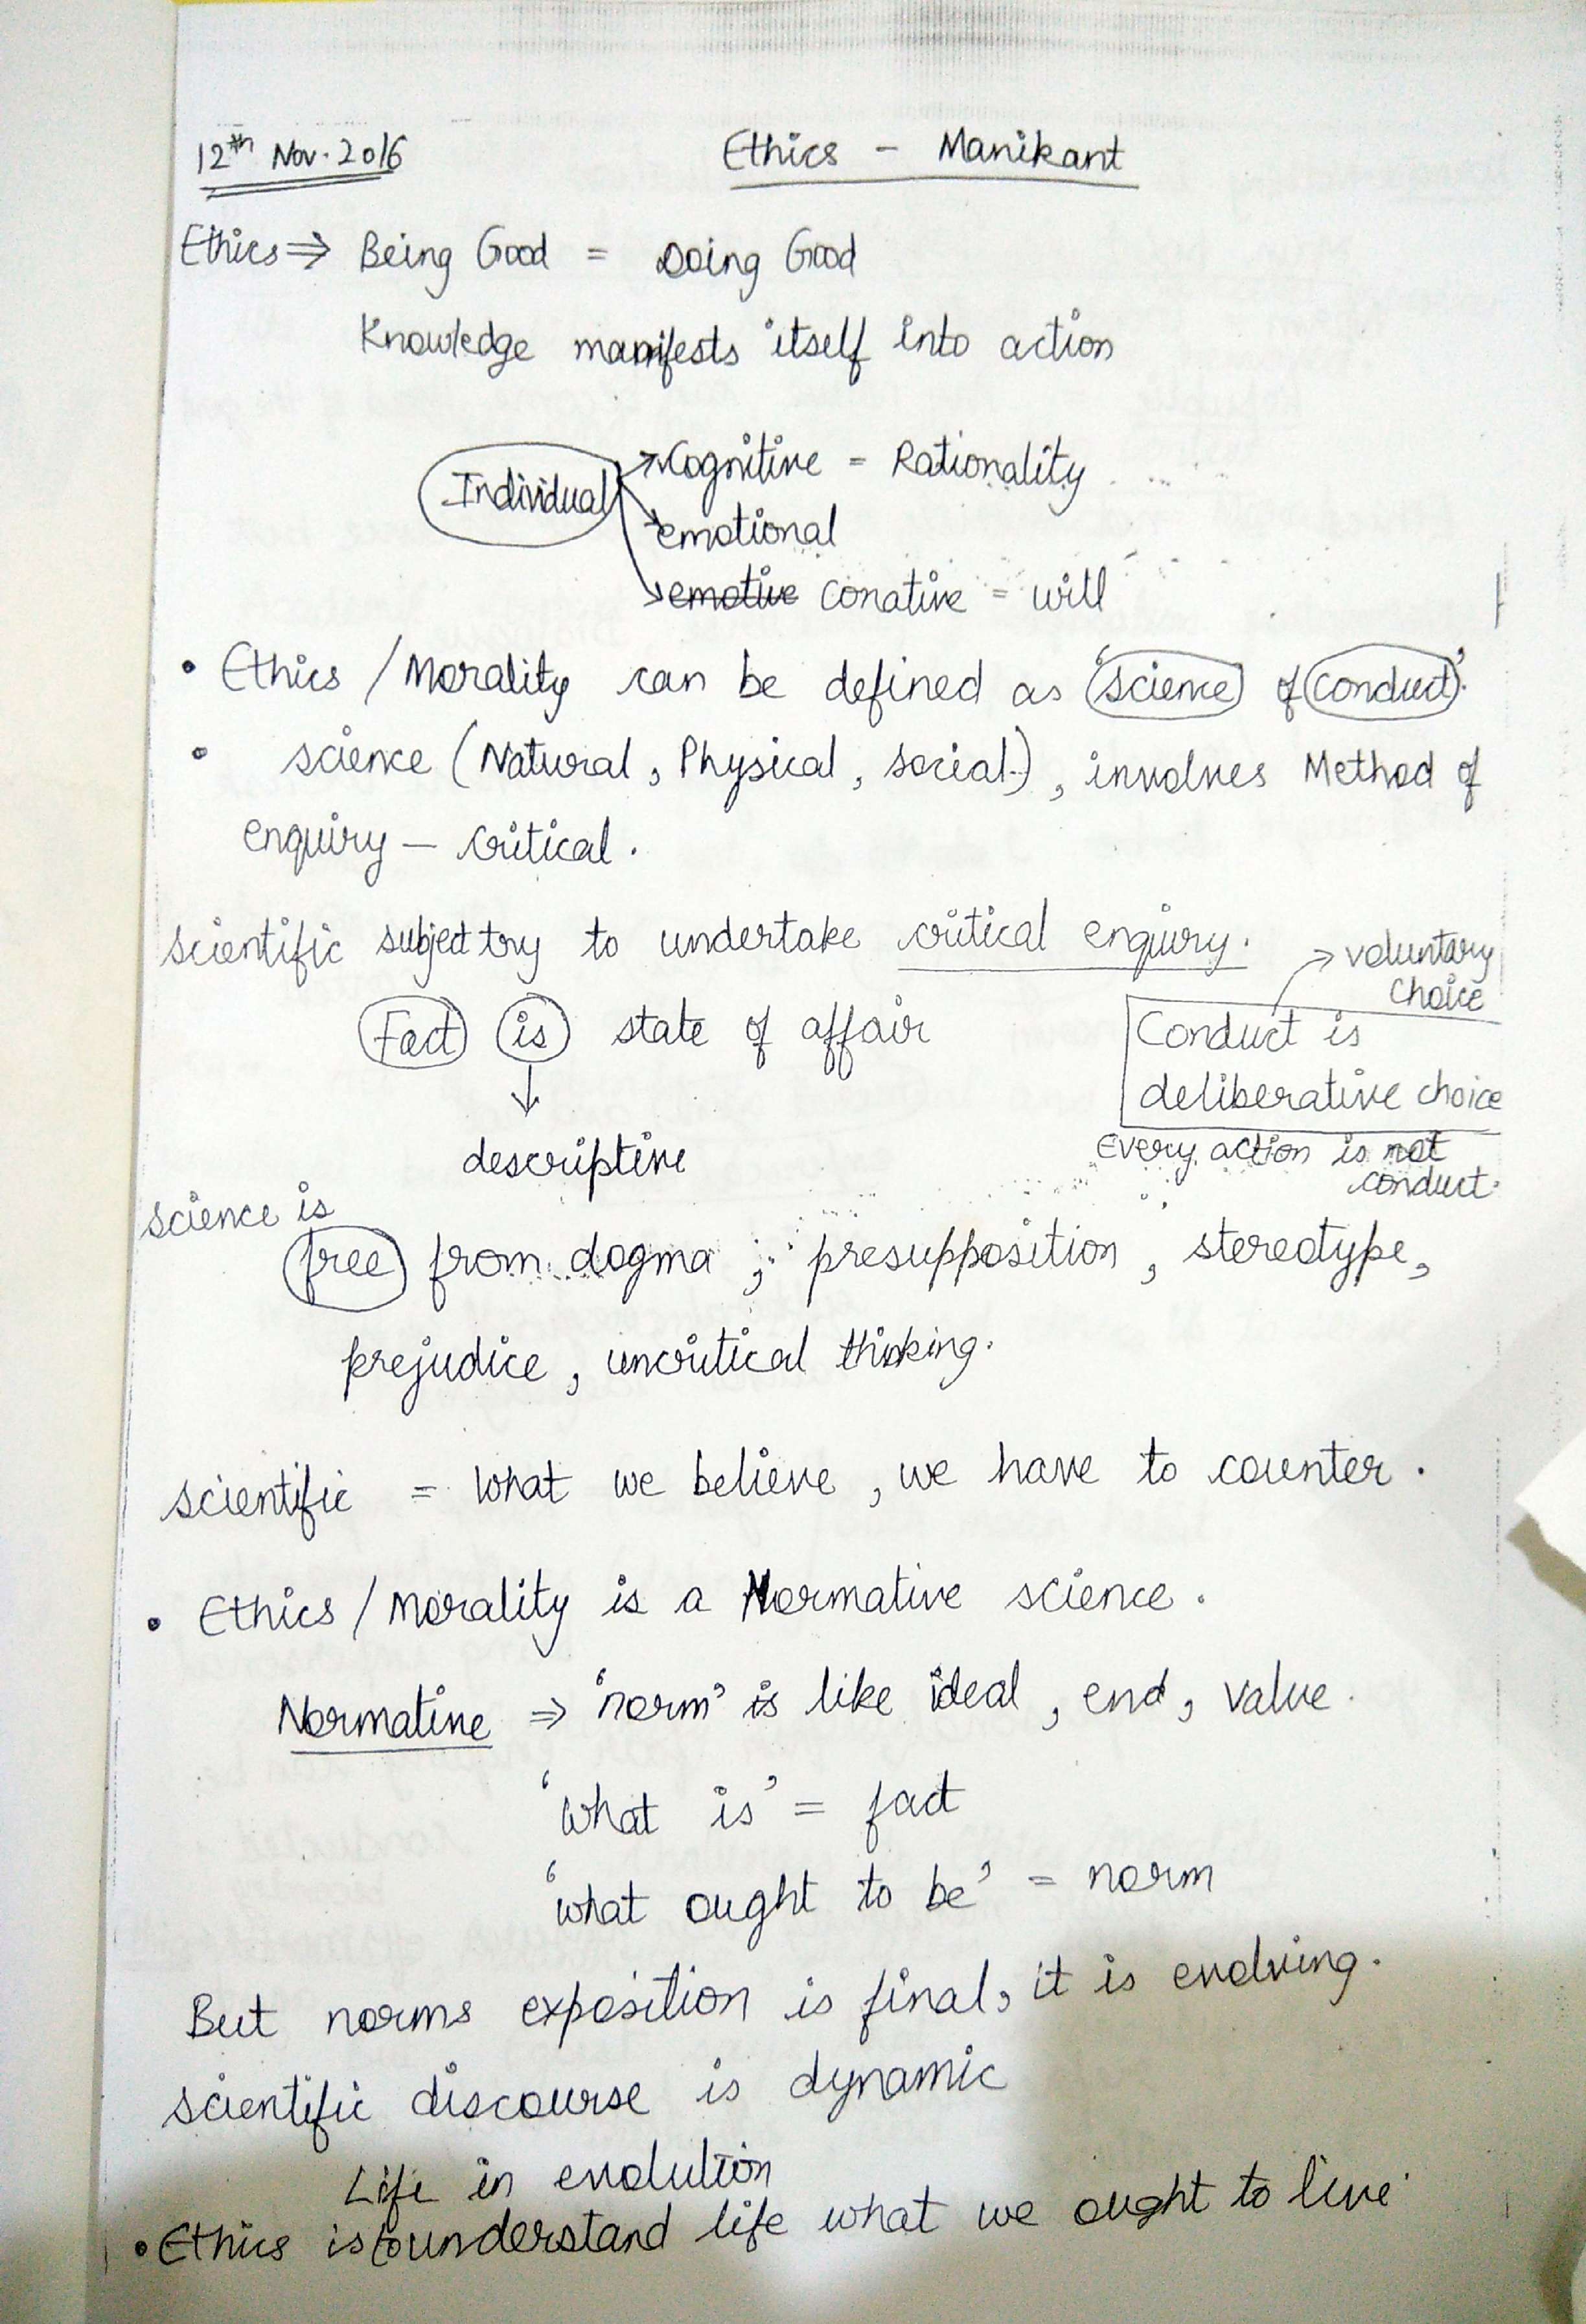 12th Nov. 2016
Ethics - Manikant
Ethics ⇒ Being Good = Doing Good
Knowledge manifests itself into action
Individual → Cognitive = Rationality
→ emotional
→ emotive conative = will
• Ethics / Morality can be defined as 'science of conduct'.
• science (Natural, Physical, social..), involves Method of
enquiry — critical.
scientific subject try to undertake critical enquiry.
→ voluntary
choice
Fact is state of affair
Conduct is
deliberative choice
↓
descriptive
Every action is not
conduct.
science is
free from dogma, presupposition, stereotype,
prejudice, uncritical thinking.
scientific = what we believe, we have to counter.
• Ethics / Morality is a Normative science.
Normative ⇒ 'norm' is like ideal, end, value.
'what is' = fact
'what ought to be' = norm
But norms exposition is final, it is evolving.
scientific discourse is dynamic
Life in evolution
• Ethics is to understand life what we ought to live